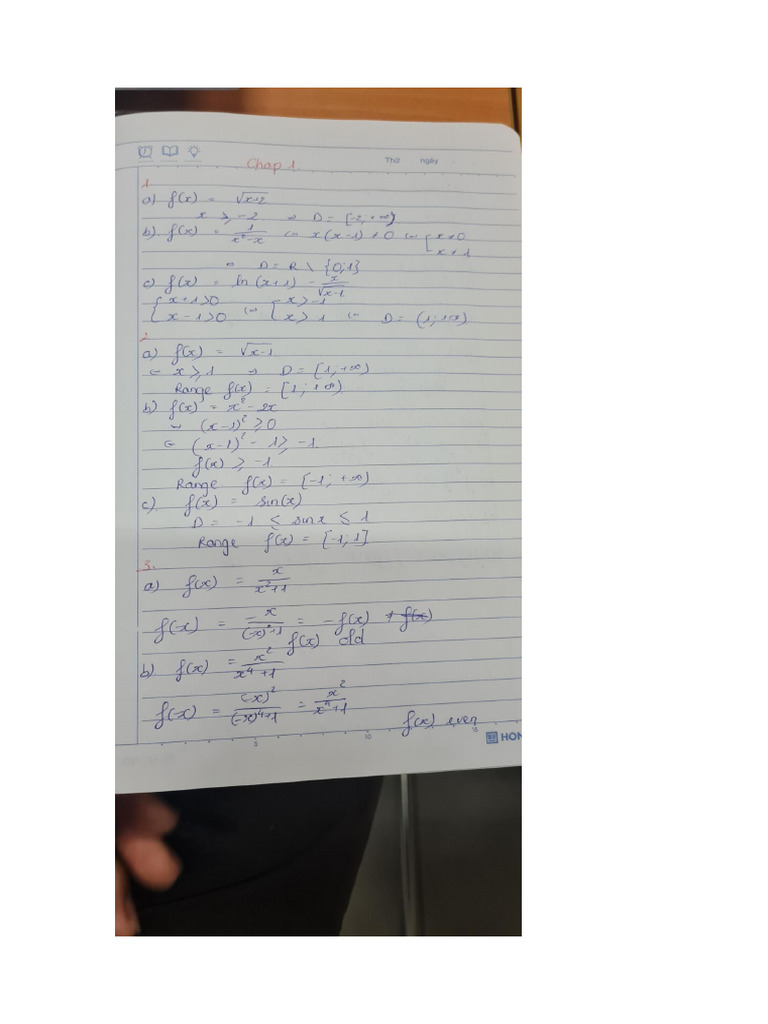 Thứ ngày
Chap 1.
1.
a) f(x) = √x+2
x ≥ -2 ⇒ D = [-2; +∞)
b) f(x) = 1/(x²-x) ⇔ x(x-1) ≠ 0 ⇔ [x ≠ 0
x ≠ 1
⇒ D = R \ {0;1}
c) f(x) = ln(x+1) - x/√x-1
{x+1>0 ⇔ [x > -1
x-1>0 x > 1 ⇔ D = (1; +∞)
2.
a) f(x) = √x-1
⇔ x ≥ 1 ⇒ D = [1; +∞)
Range f(x) = [1; +∞)
b) f(x) = x² - 2x
⇔ (x-1)² ≥ 0
⇔ (x-1)² - 1 ≥ -1
f(x) ≥ -1
Range f(x) = [-1; +∞)
c) f(x) = sin(x)
D = -1 ≤ sinx ≤ 1
Range f(x) = [-1; 1]
3.
a) f(x) = x/(x²+1)
f(-x) = -x/((-x)²+1) = -f(x) ≠ f(x)
f(x) old
b) f(x) = x²/(x⁴+1)
f(-x) = (-x)²/((-x)⁴+1) = x²/(x⁴+1)
f(x) even
5 10 15
HON